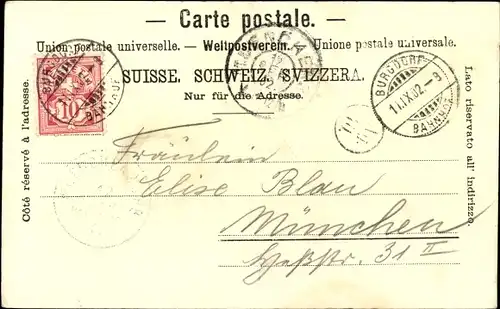 — Carte postale. —
Union postale universelle. — Weltpostverein. — Unione postale universale.
SUISSE. SCHWEIZ. SVIZZERA.
Nur für die Adresse.
Côté réservé à l'adresse.
Lato riservato all' indirizzo.
10
BURGDORF
BAHNHOF
Fräulein
Elise Blau
München
31 II